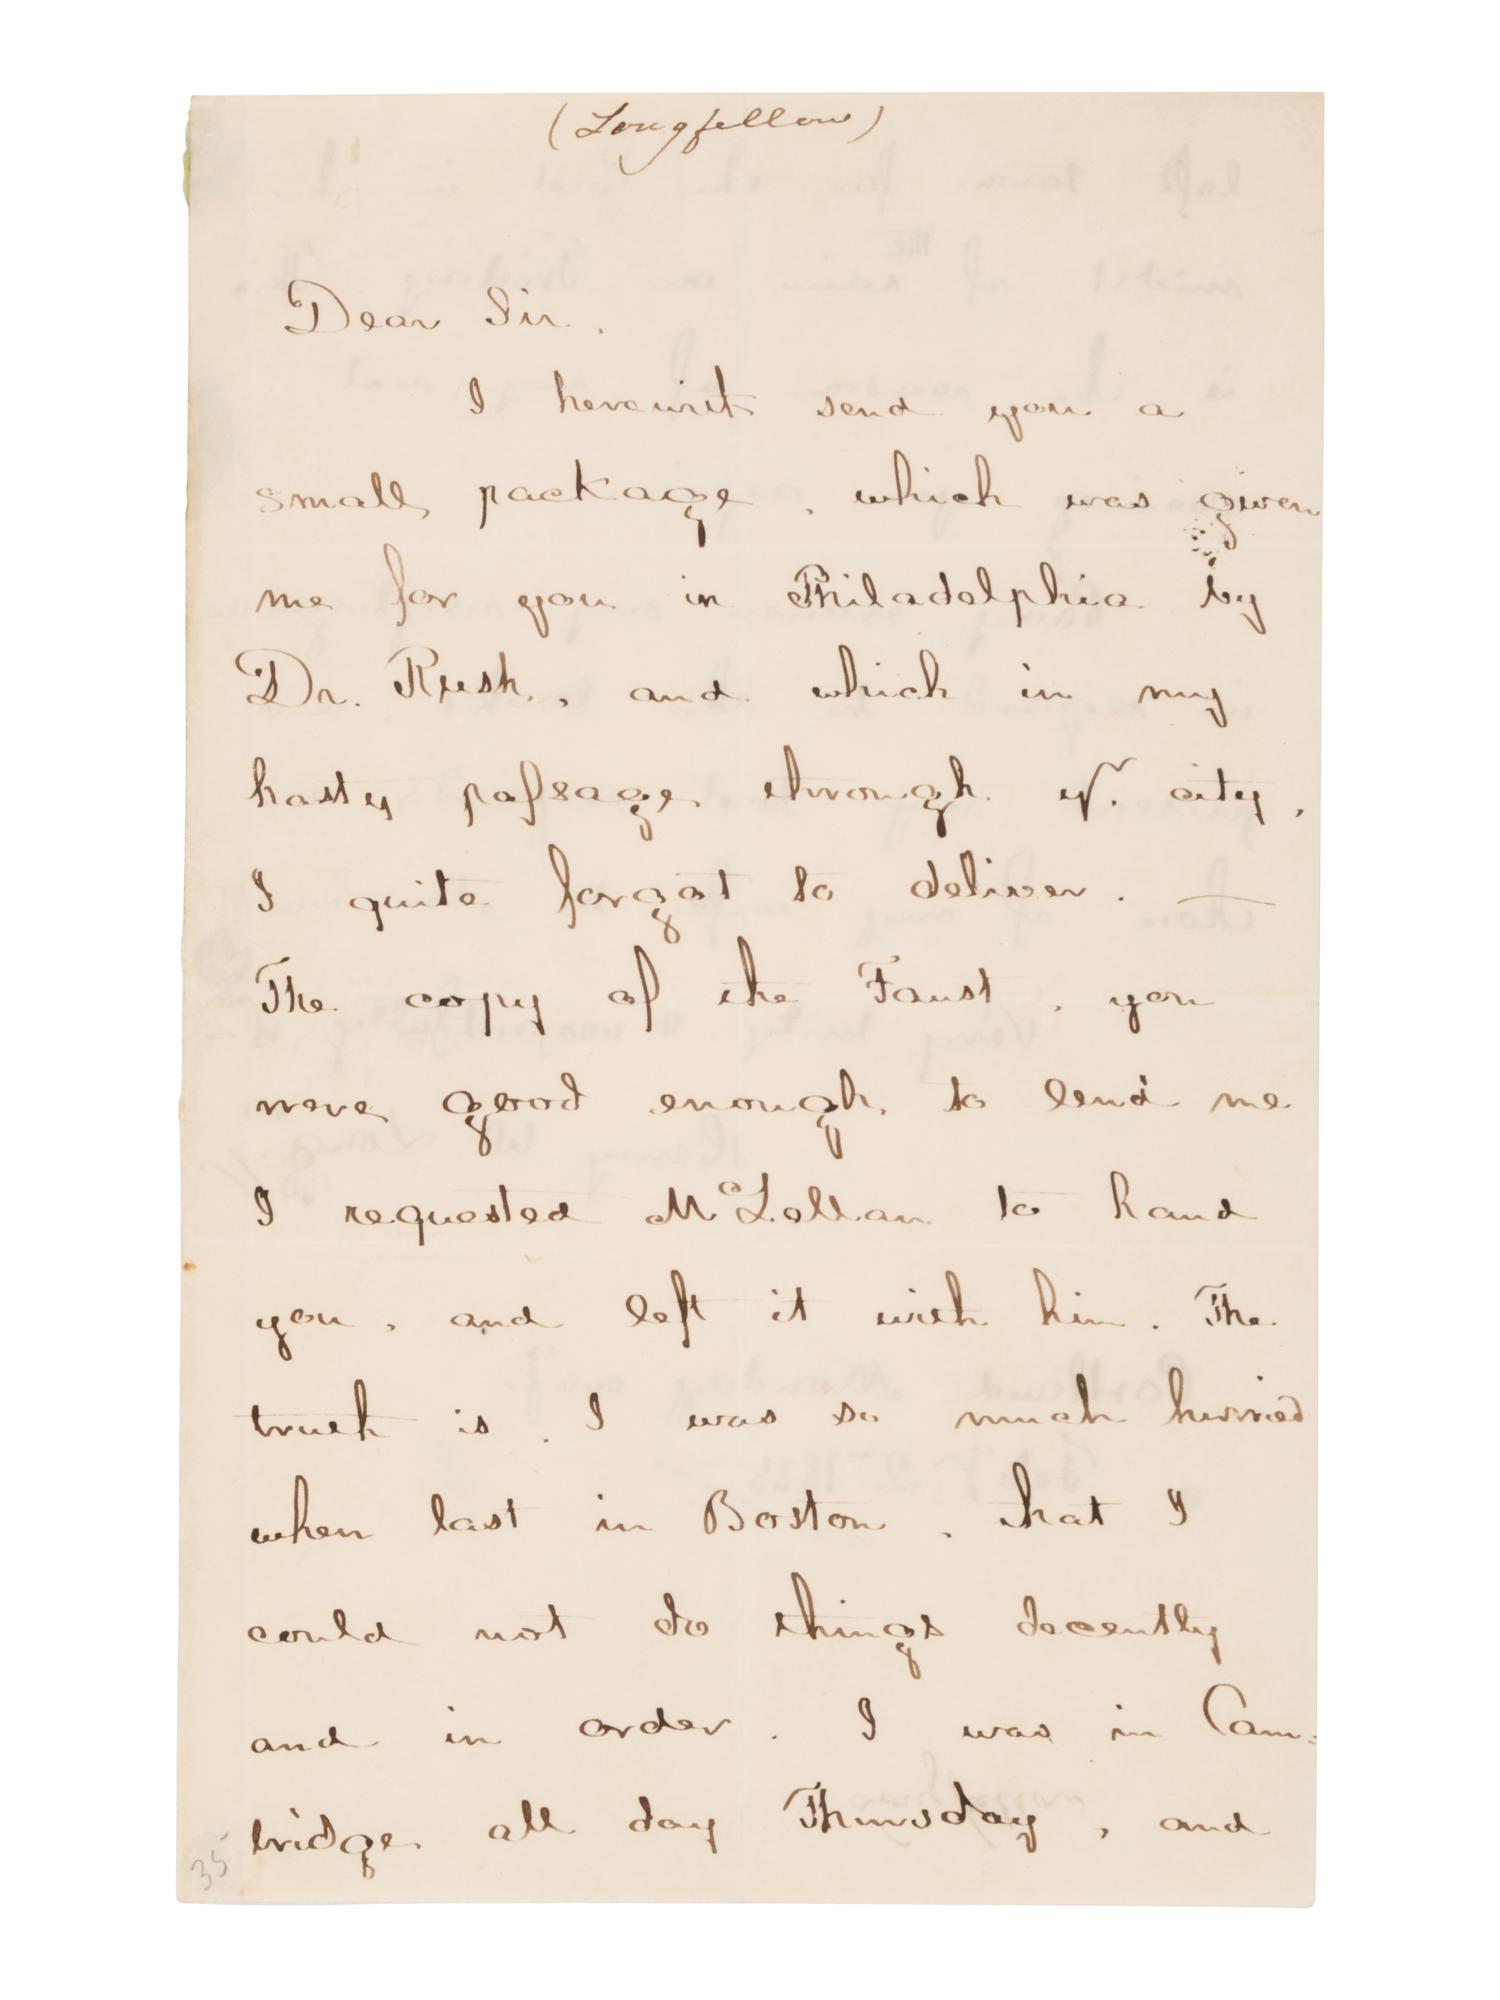 (Longfellow)
Dear Sir.
I herewith send you a
small package, which was given
me for you in Philadelphia by
Dr. Rush, and which in my
hasty passage through yr. city,
I quite forgot to deliver. —
The copy of the Faust, you
were good enough to lend me
I requested McLellan to hand
you, and left it with him. The
truth is, I was so much hurried
when last in Boston, that I
could not do things decently
and in order. I was in Cam=
bridge all day Thursday, and
35